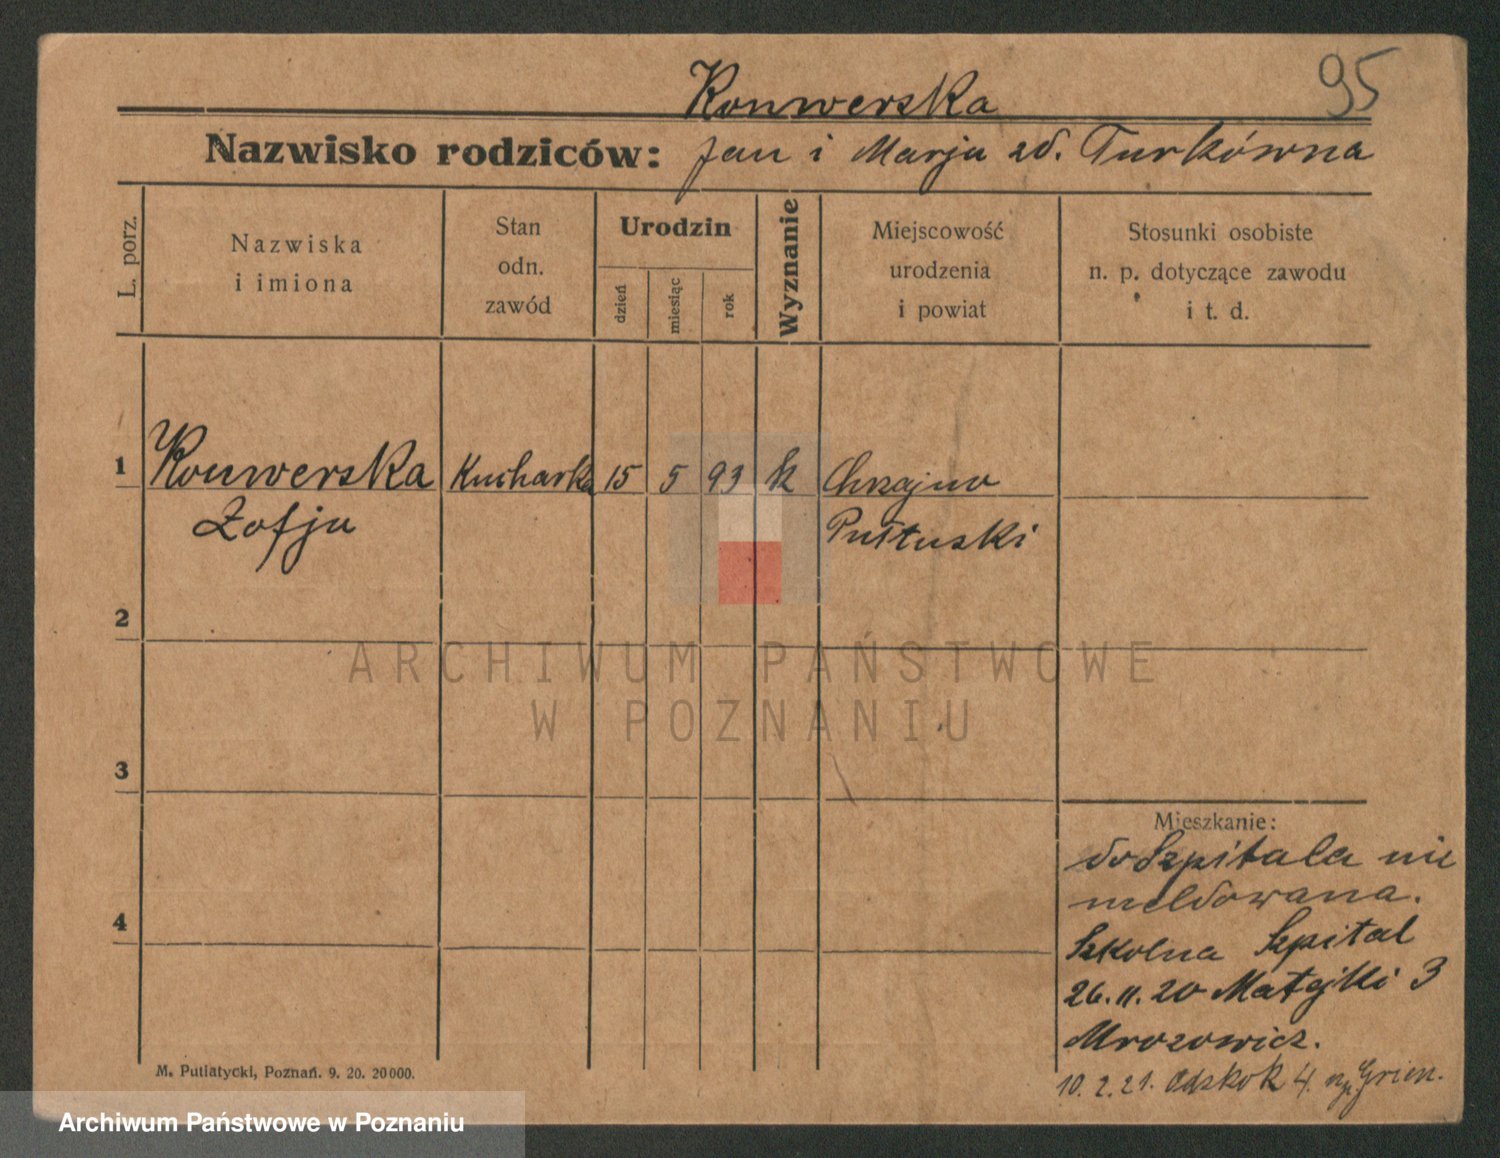 95
Konwerska
Nazwisko rodziców: Jan i Marja zd. Turkówna
L. porz.
Nazwiska
i imiona
Stan
odn.
zawód
Urodzin
dzień
miesiąc
rok
Wyznanie
Miejscowość
urodzenia
i powiat
Stosunki osobiste
n. p. dotyczące zawodu
i t. d.
1 Konwerska Kucharka 15 5 93 k Chrzajno
Zofja Pułtuski
2
ARCHIWUM PAŃSTWOWE
W POZNANIU
3
4
Mieszkanie:
do Szpitala nie
meldowana.
Szkolna Szpital
26.11.20 Matejki 3
Mrozowicz.
10.2.21. Odskok 4
M. Putiatycki, Poznań. 9. 20. 20000.
Archiwum Państwowe w Poznaniu